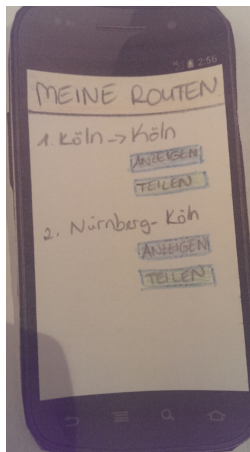 2:56
MEINE ROUTEN
1. Köln -> Köln
ANZEIGEN
TEILEN
2. Nürnberg - Köln
ANZEIGEN
TEILEN